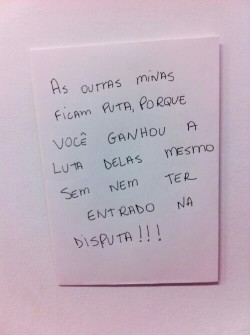 AS OUTRAS MINAS
FICAM PUTA, PORQUE
VOCÊ GANHOU A
LUTA DELAS MESMO
SEM NEM TER
ENTRADO NA
DISPUTA!!!